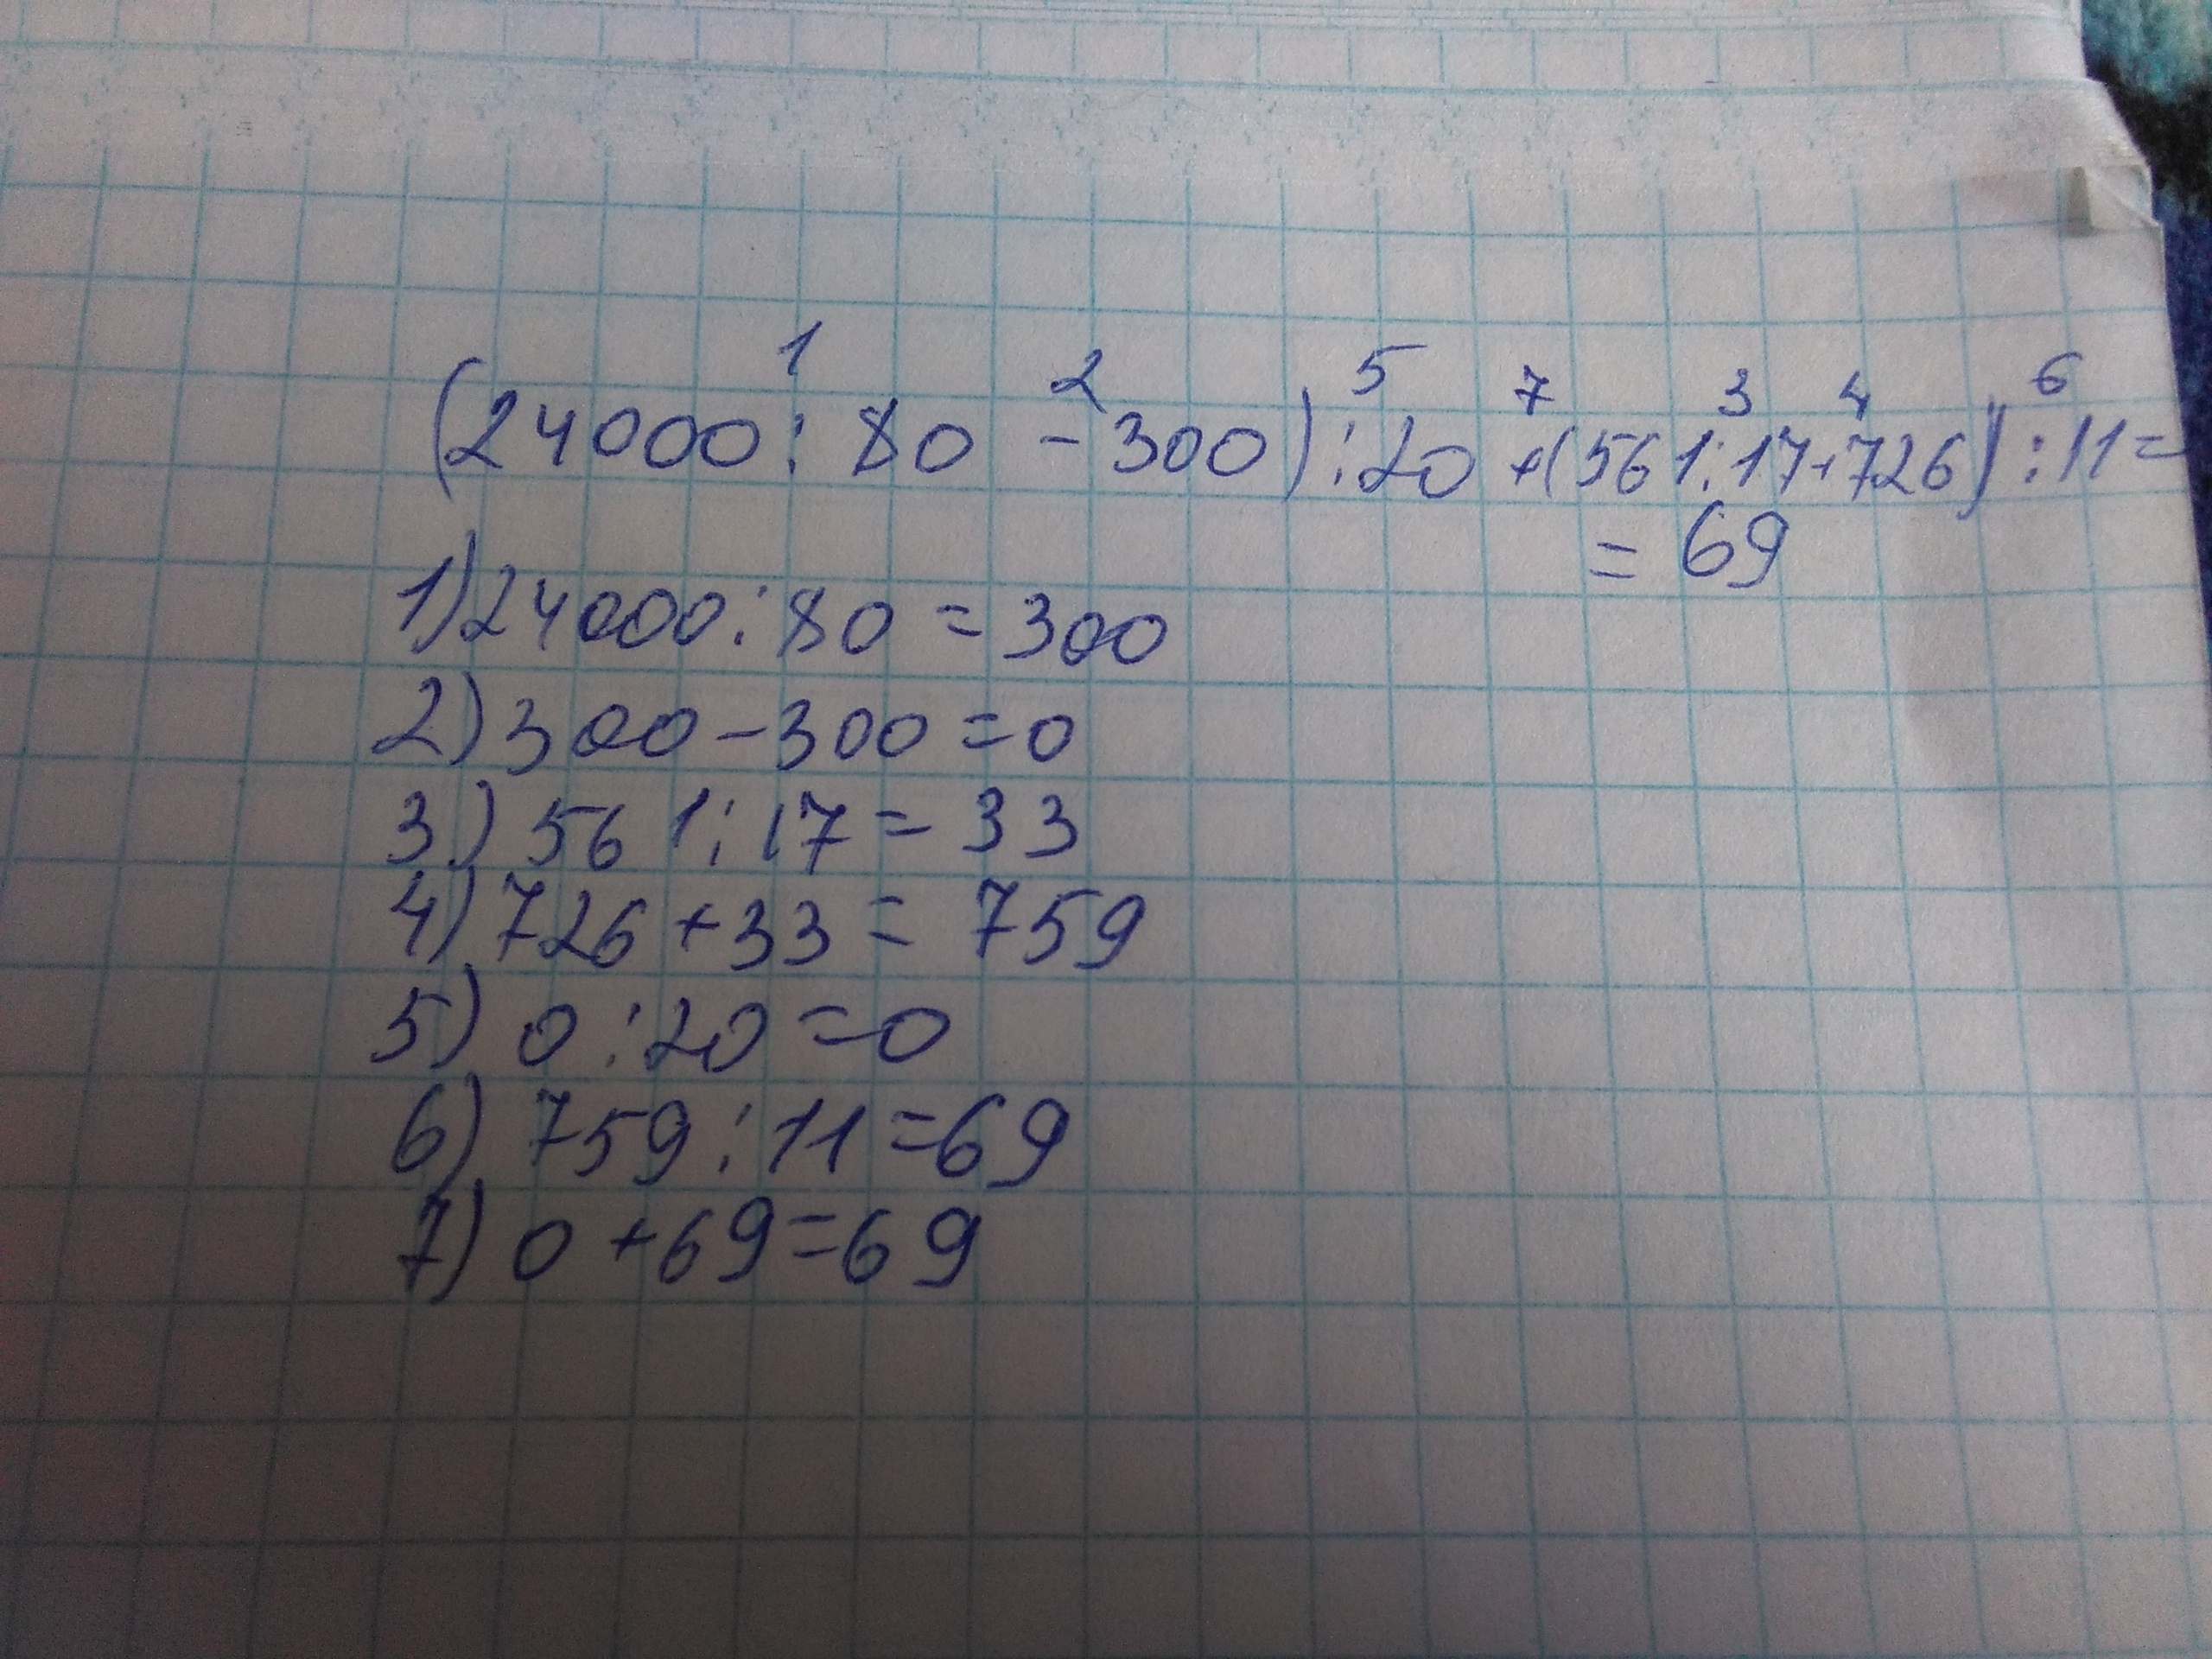 1 2 5 7 3 4 6
(24000 : 80 - 300) : 20 + (561 : 17 + 726) : 11 =
= 69
1) 24000 : 80 = 300
2) 300 - 300 = 0
3) 561 : 17 = 33
4) 726 + 33 = 759
5) 0 : 20 = 0
6) 759 : 11 = 69
7) 0 + 69 = 69